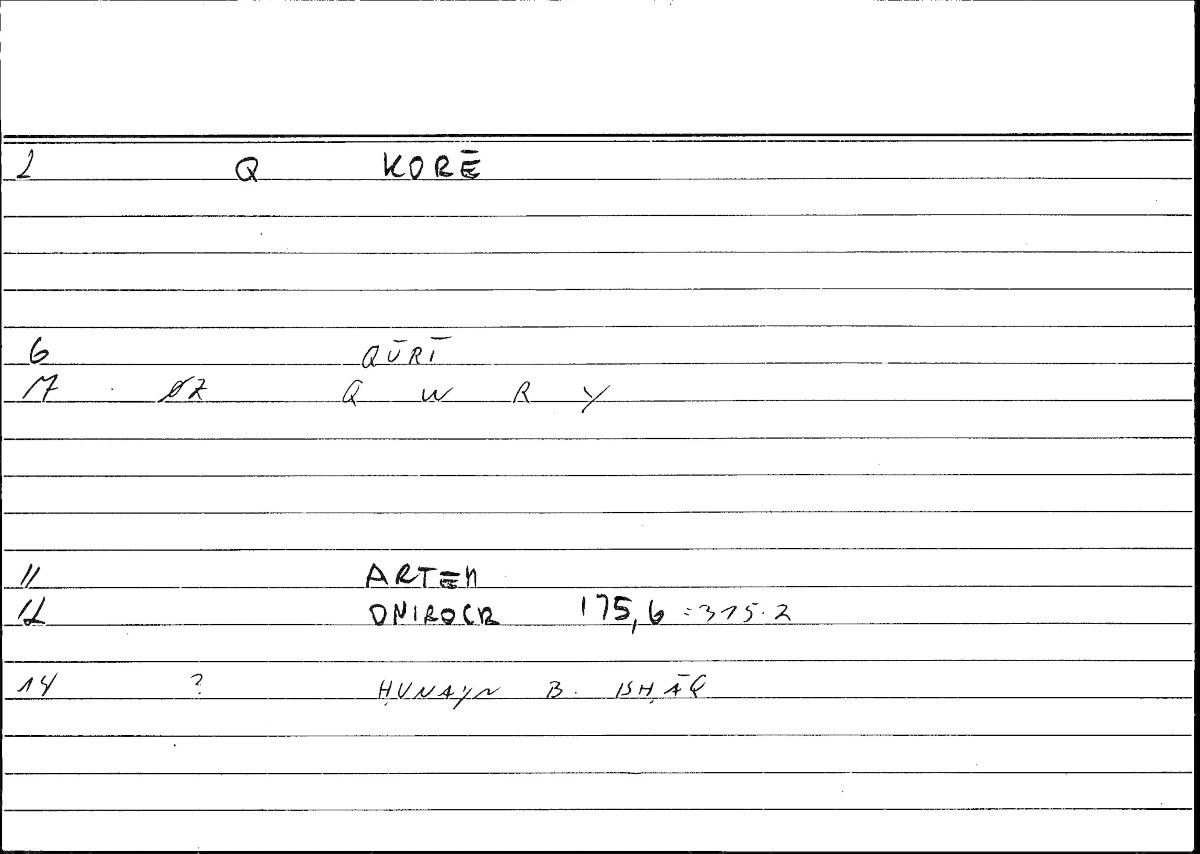 2 Q KORĒ
6 QŪRĪ
7 ØZ Q W R Y
11 ARTEM
12 ONIROCR 175,6 = 315.2
14 ? ḤUNAYN B. ISḤĀQ